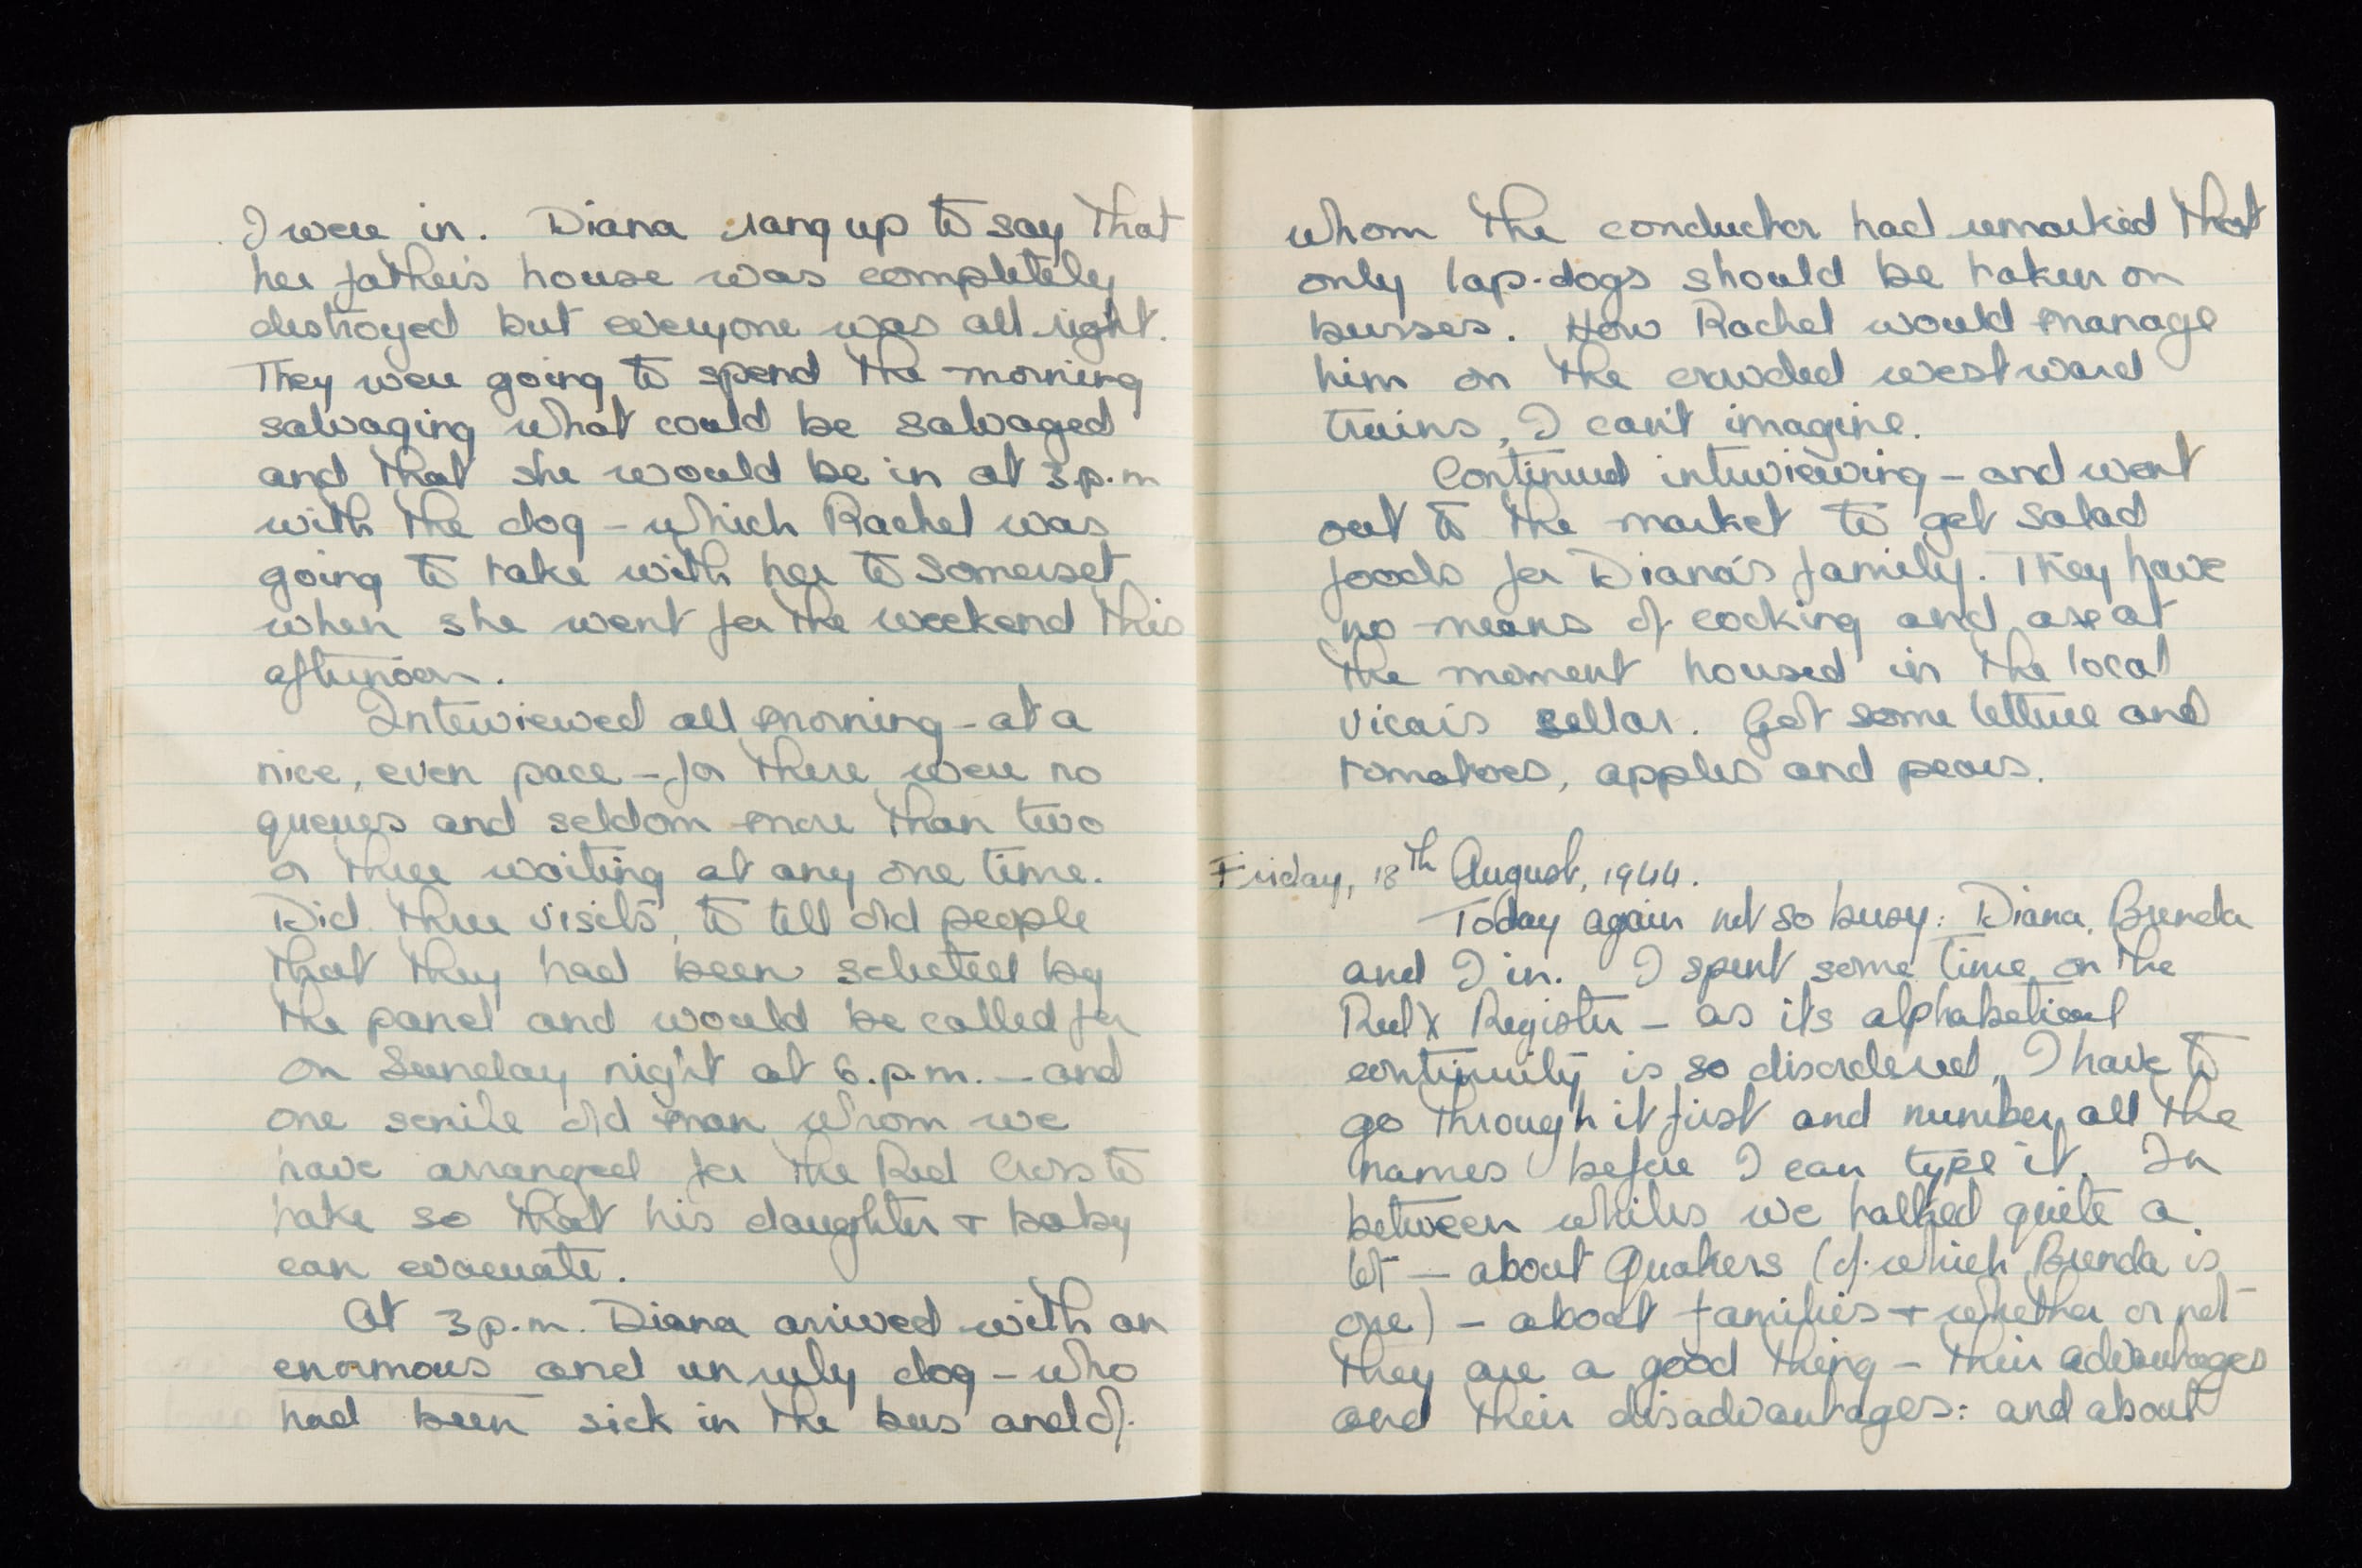 I were in. Diana rang up to say that
her father's house was completely
destroyed but everyone was all right.
They were going to spend the morning
salvaging what could be salvaged
and that she would be in at 3.p.m
with the dog - which Rachel was
going to take with her to Somerset
when she went for the weekend this
afternoon.
Interviewed all morning - at a
nice, even pace - for there were no
queues and seldom more than two
or three waiting at any one time.
Did three visits, to tell old people
that they had been selected by
the panel and would be called for
on Sunday night at 6.p.m. - and
one senile old man whom we
have arranged for the Red Cross to
take so that his daughter + baby
can evacuate.
At 3 p.m. Diana arrived with an
enormous and unruly dog - who
had been sick in the bus and of
whom the conductor had remarked that
only lap-dogs should be taken on
busses. How Rachel would manage
him on the crowded westward
trains, I can't imagine.
Continued interviewing - and went
out to the market to get salad
foods for Diana's family. They have
no means of cooking and are at
the moment housed in the local
vicar's cellar. Got some lettuce and
tomatoes, apples and pears.
Friday, 18th August, 1944.
Today again not so busy: Diana, Brenda
and I in. I spent some time on the
Red X Register - as its alphabetical
continuity is so disordered, I have to
go through it first and number all the
names before I can type it. In
between whiles we talked quite a
lot - about Quakers (of which Brenda is
one) - about families + whether or not
they are a good thing - their advantages
and their disadvantages: and about